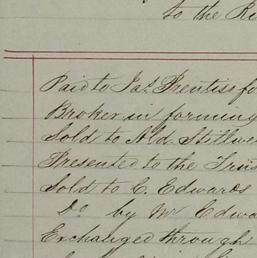 to the Ri
Paid to Jas. Prentiss fo
Broker in forming
Sold to A.d. Stillwe
Presented to the Trus
Sold to C. Edwards
Do by Mr Edwa
Exchanged through